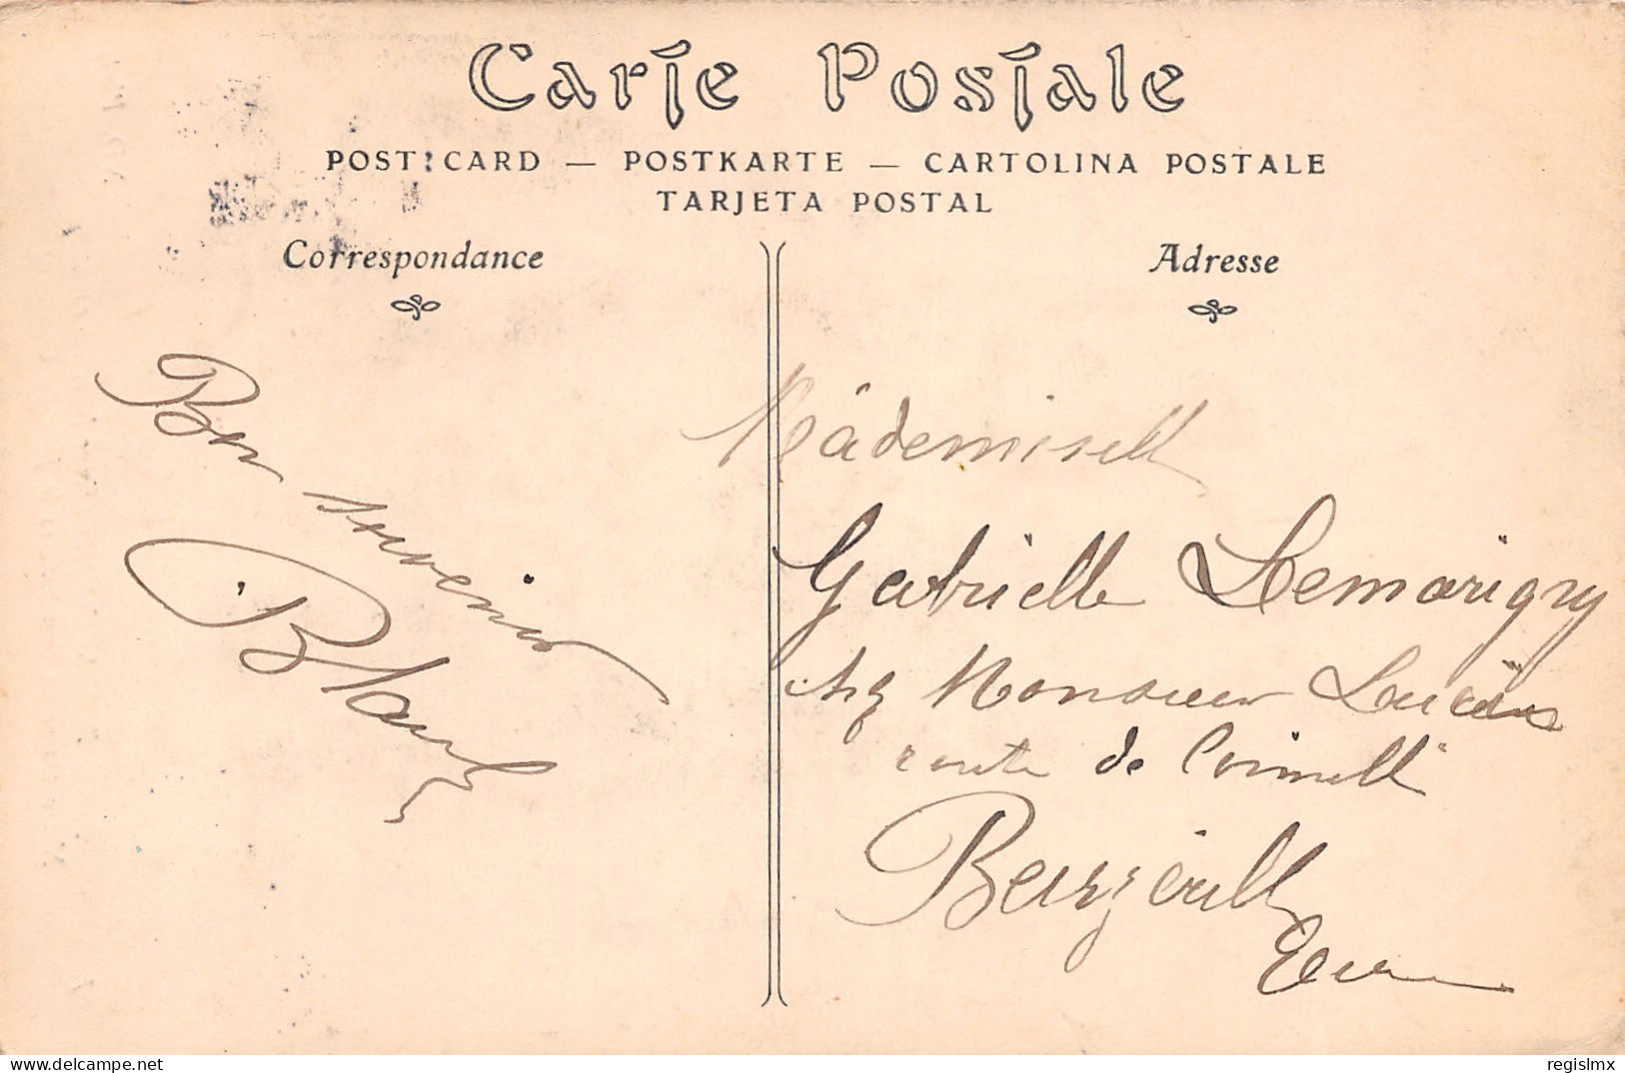 Carte Postale
POST CARD — POSTKARTE — CARTOLINA POSTALE
TARJETA POSTAL
Correspondance
Adresse
Bon souvenir
Mademoiselle
Gabrielle Lemarigny
chez Monsieur
route de
Beuzeville
Eure
delcampe.net
regislmx